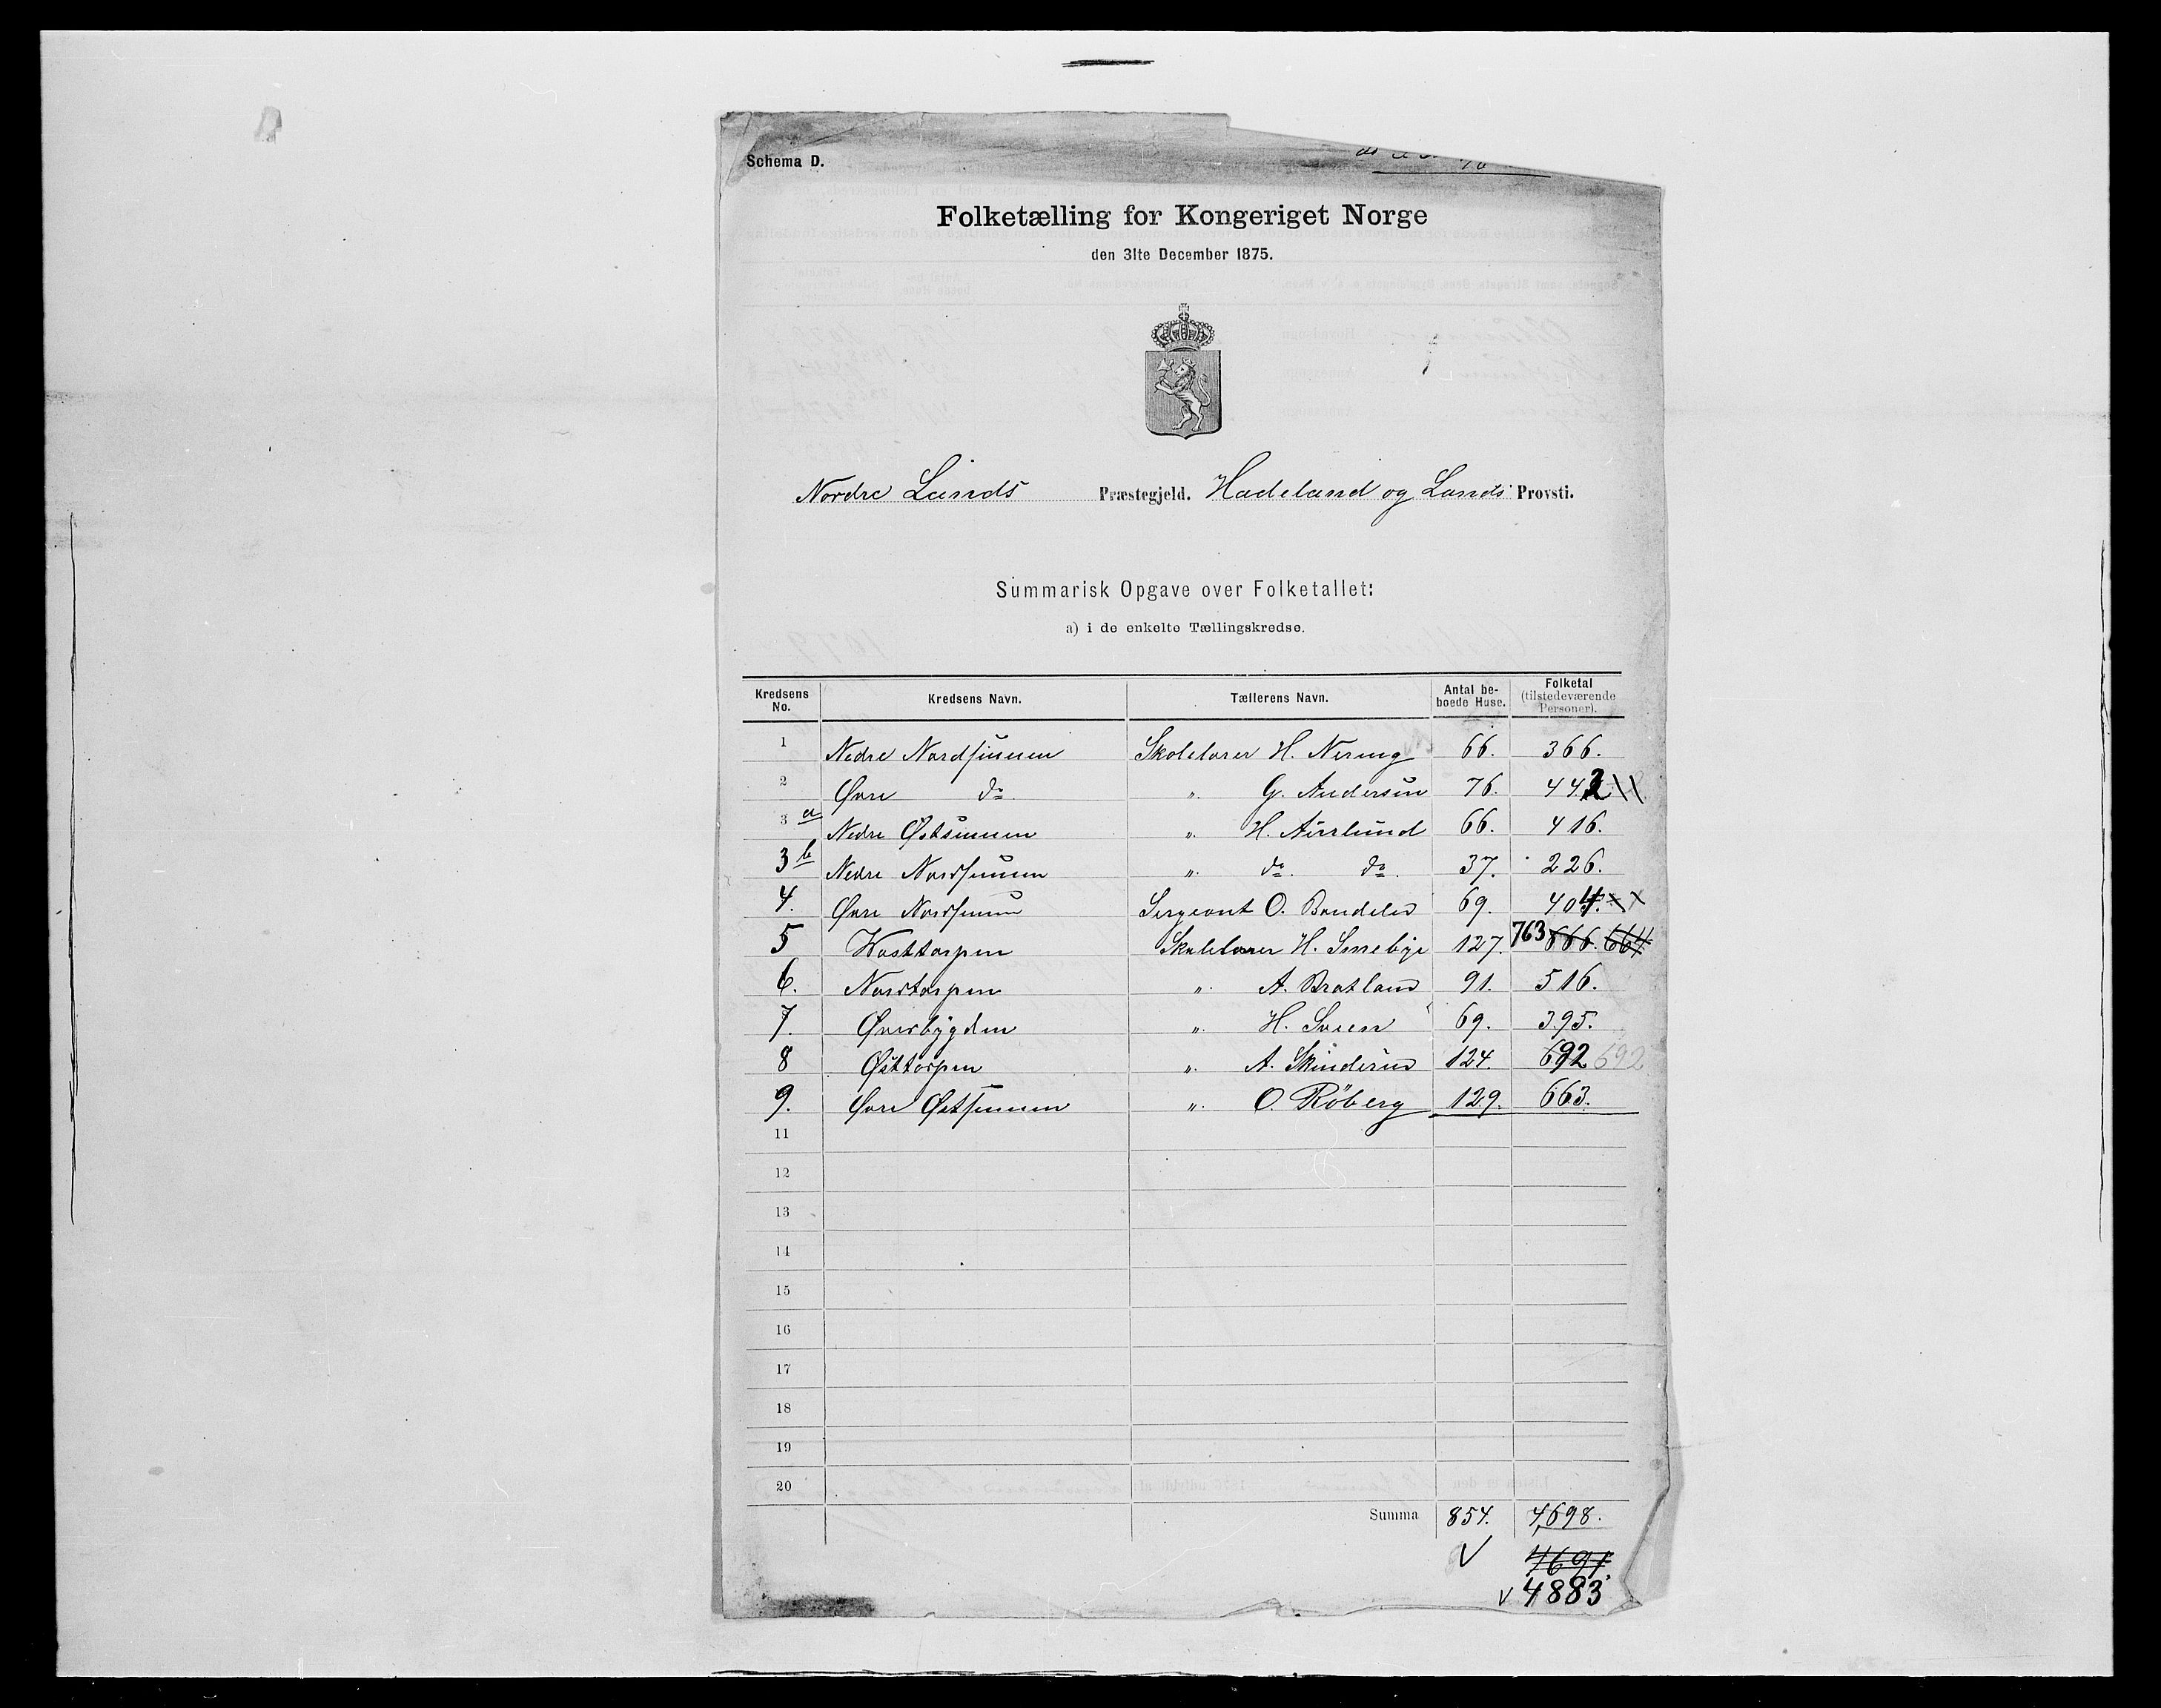 Schema D.
Folketælling for Kongeriget Norge
den 31te December 1875.
Nordre Lands Præstegjeld. Hadeland og Lands Provsti.
Summarisk Opgave over Folketallet:
a) i de enkelte Tællingskredse.
Kredsens No. Kredsens Navn. Tællerens Navn. Antal beboede Huse. Folketal (tilstedeværende Personer).
1 Nedre Nordsinnen Skolelærer H. Nering 66. 366.
2 Øvre do „ G. Andersen 76. 442
3 a Nedre Østsinnen „ H. 66. 416.
3 b Nedre Nordsinnen „ do. do. 37. 226.
4. Øvre Nordsinnen Sergeant O. 69. 404.
5 Vesttorpen Skolelærer H. 127. 763 666. 664
6. Nordtorpen „ A. Bratland 91. 516.
7. Øversbygden „ H. 69. 395.
8 Østtorpen „ A. Skinderud 124. 692 692
9. Øvre Østsinnen „ O. Röberg 129. 663.
11
12
13
14
15
16
17
18
19
20
Summa 854. 4,698.
4691
4883